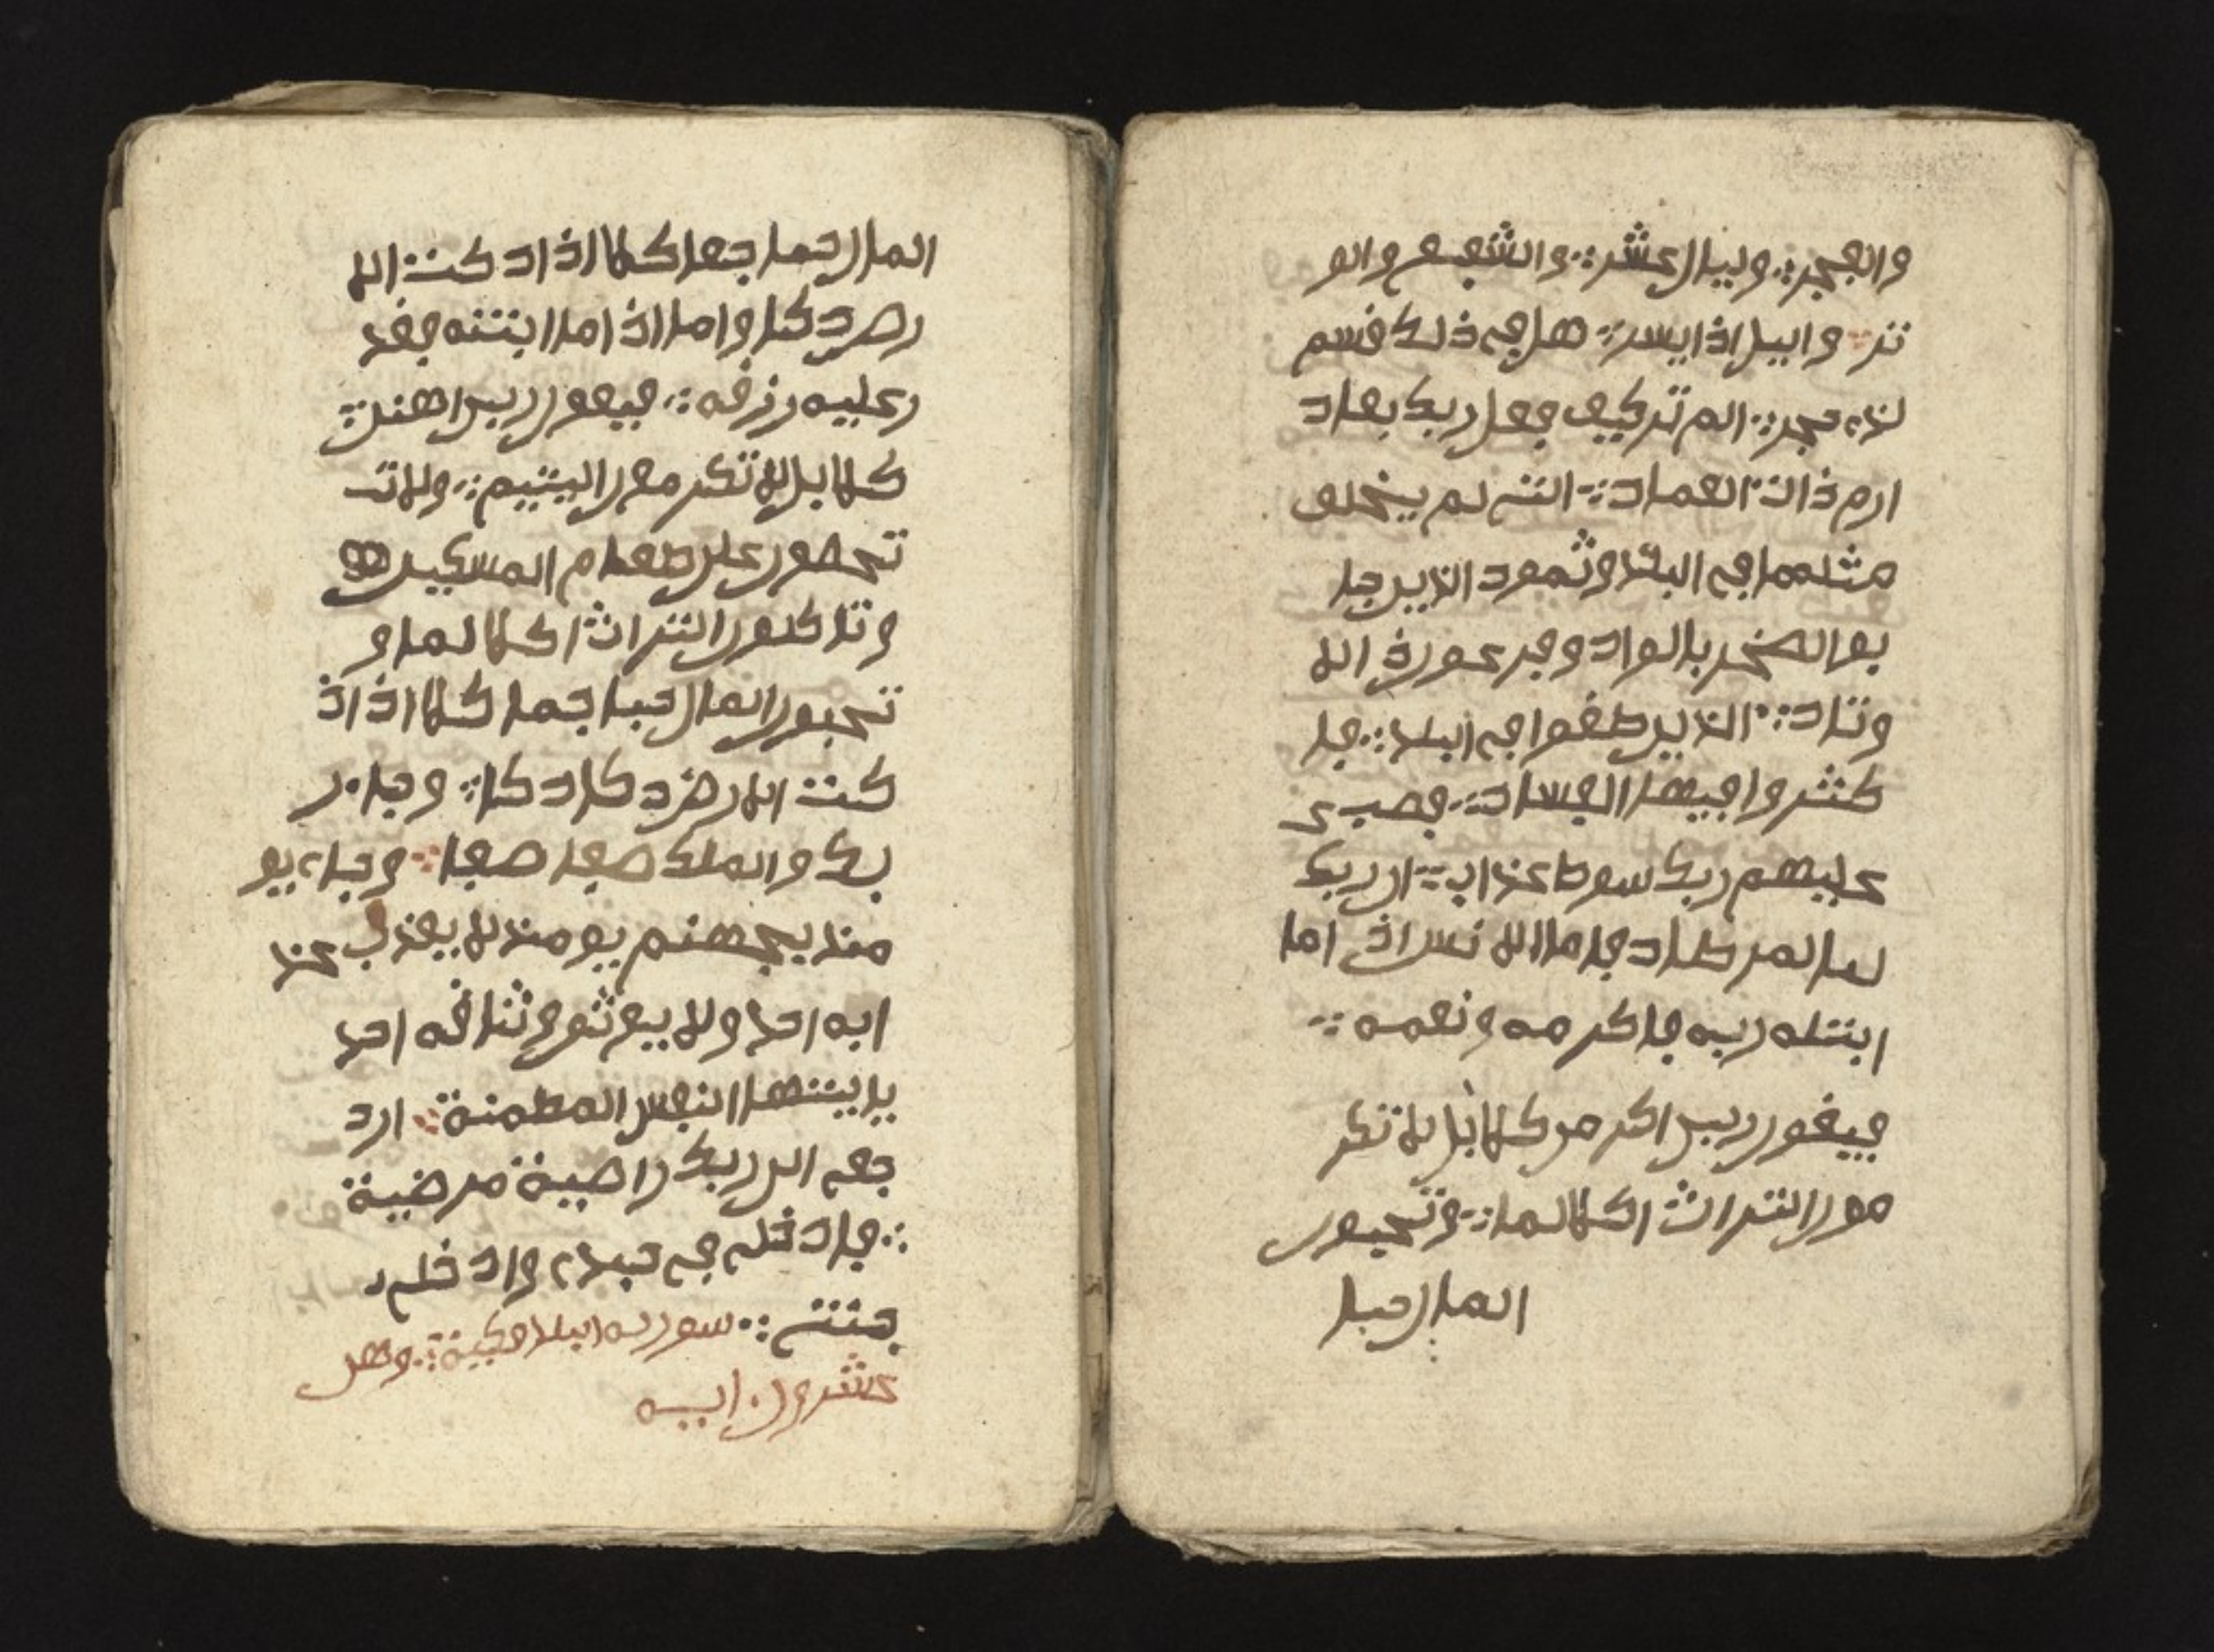 والفجر وليال عشر والشفع والو
تر واليل اذا يسر هل في ذلك قسم
لذي حجر الم تر كيف فعل ربك بعاد
ارم ذات العماد التي لم يخلق
مثلهما في البلد وثمود الذين جا
بوا الصخر بالواد وفرعون ذ الا
وتاد الذين طغوا في ابلد فا
كثروا فيها الفساد فصب ع
عليهم ربك سوط عذاب ان ربك
لبا لمرصاد فاما الا نس اذا اما
ابتله ربه فاكرمه ونعمه
فيقول ربي اكرمن كلا بل لا تكر
مون التراث اكلا لما وتحبون
المال حبا
المال حما جعا كلا اذا د كت الا
رض د كا واما اذا ما ابتله فقد
ر عليه رزقه فيقول ربي اهنن
كلا بل لا تكرمون اليتيم ولا ت
تحضون على طعام المسكين
وتاكلون التراث اكلا لما و
تحبون المال حبا جما كلا اذا اذ
كت الارض د كا د كا وجاء ر
بك والملك صفا صفا وجاء يو
مئذ بجهنم يومئذ لا يعذب عذ
ابه احد ولا يوثق وثاقه احد
يا ايتها النفس المطمنة ارد
جعي الى ربك راضية مرضية
فادخلي في عبدي وادخلي
جنتي سورة ابلد مكية وهي
عشرون اية